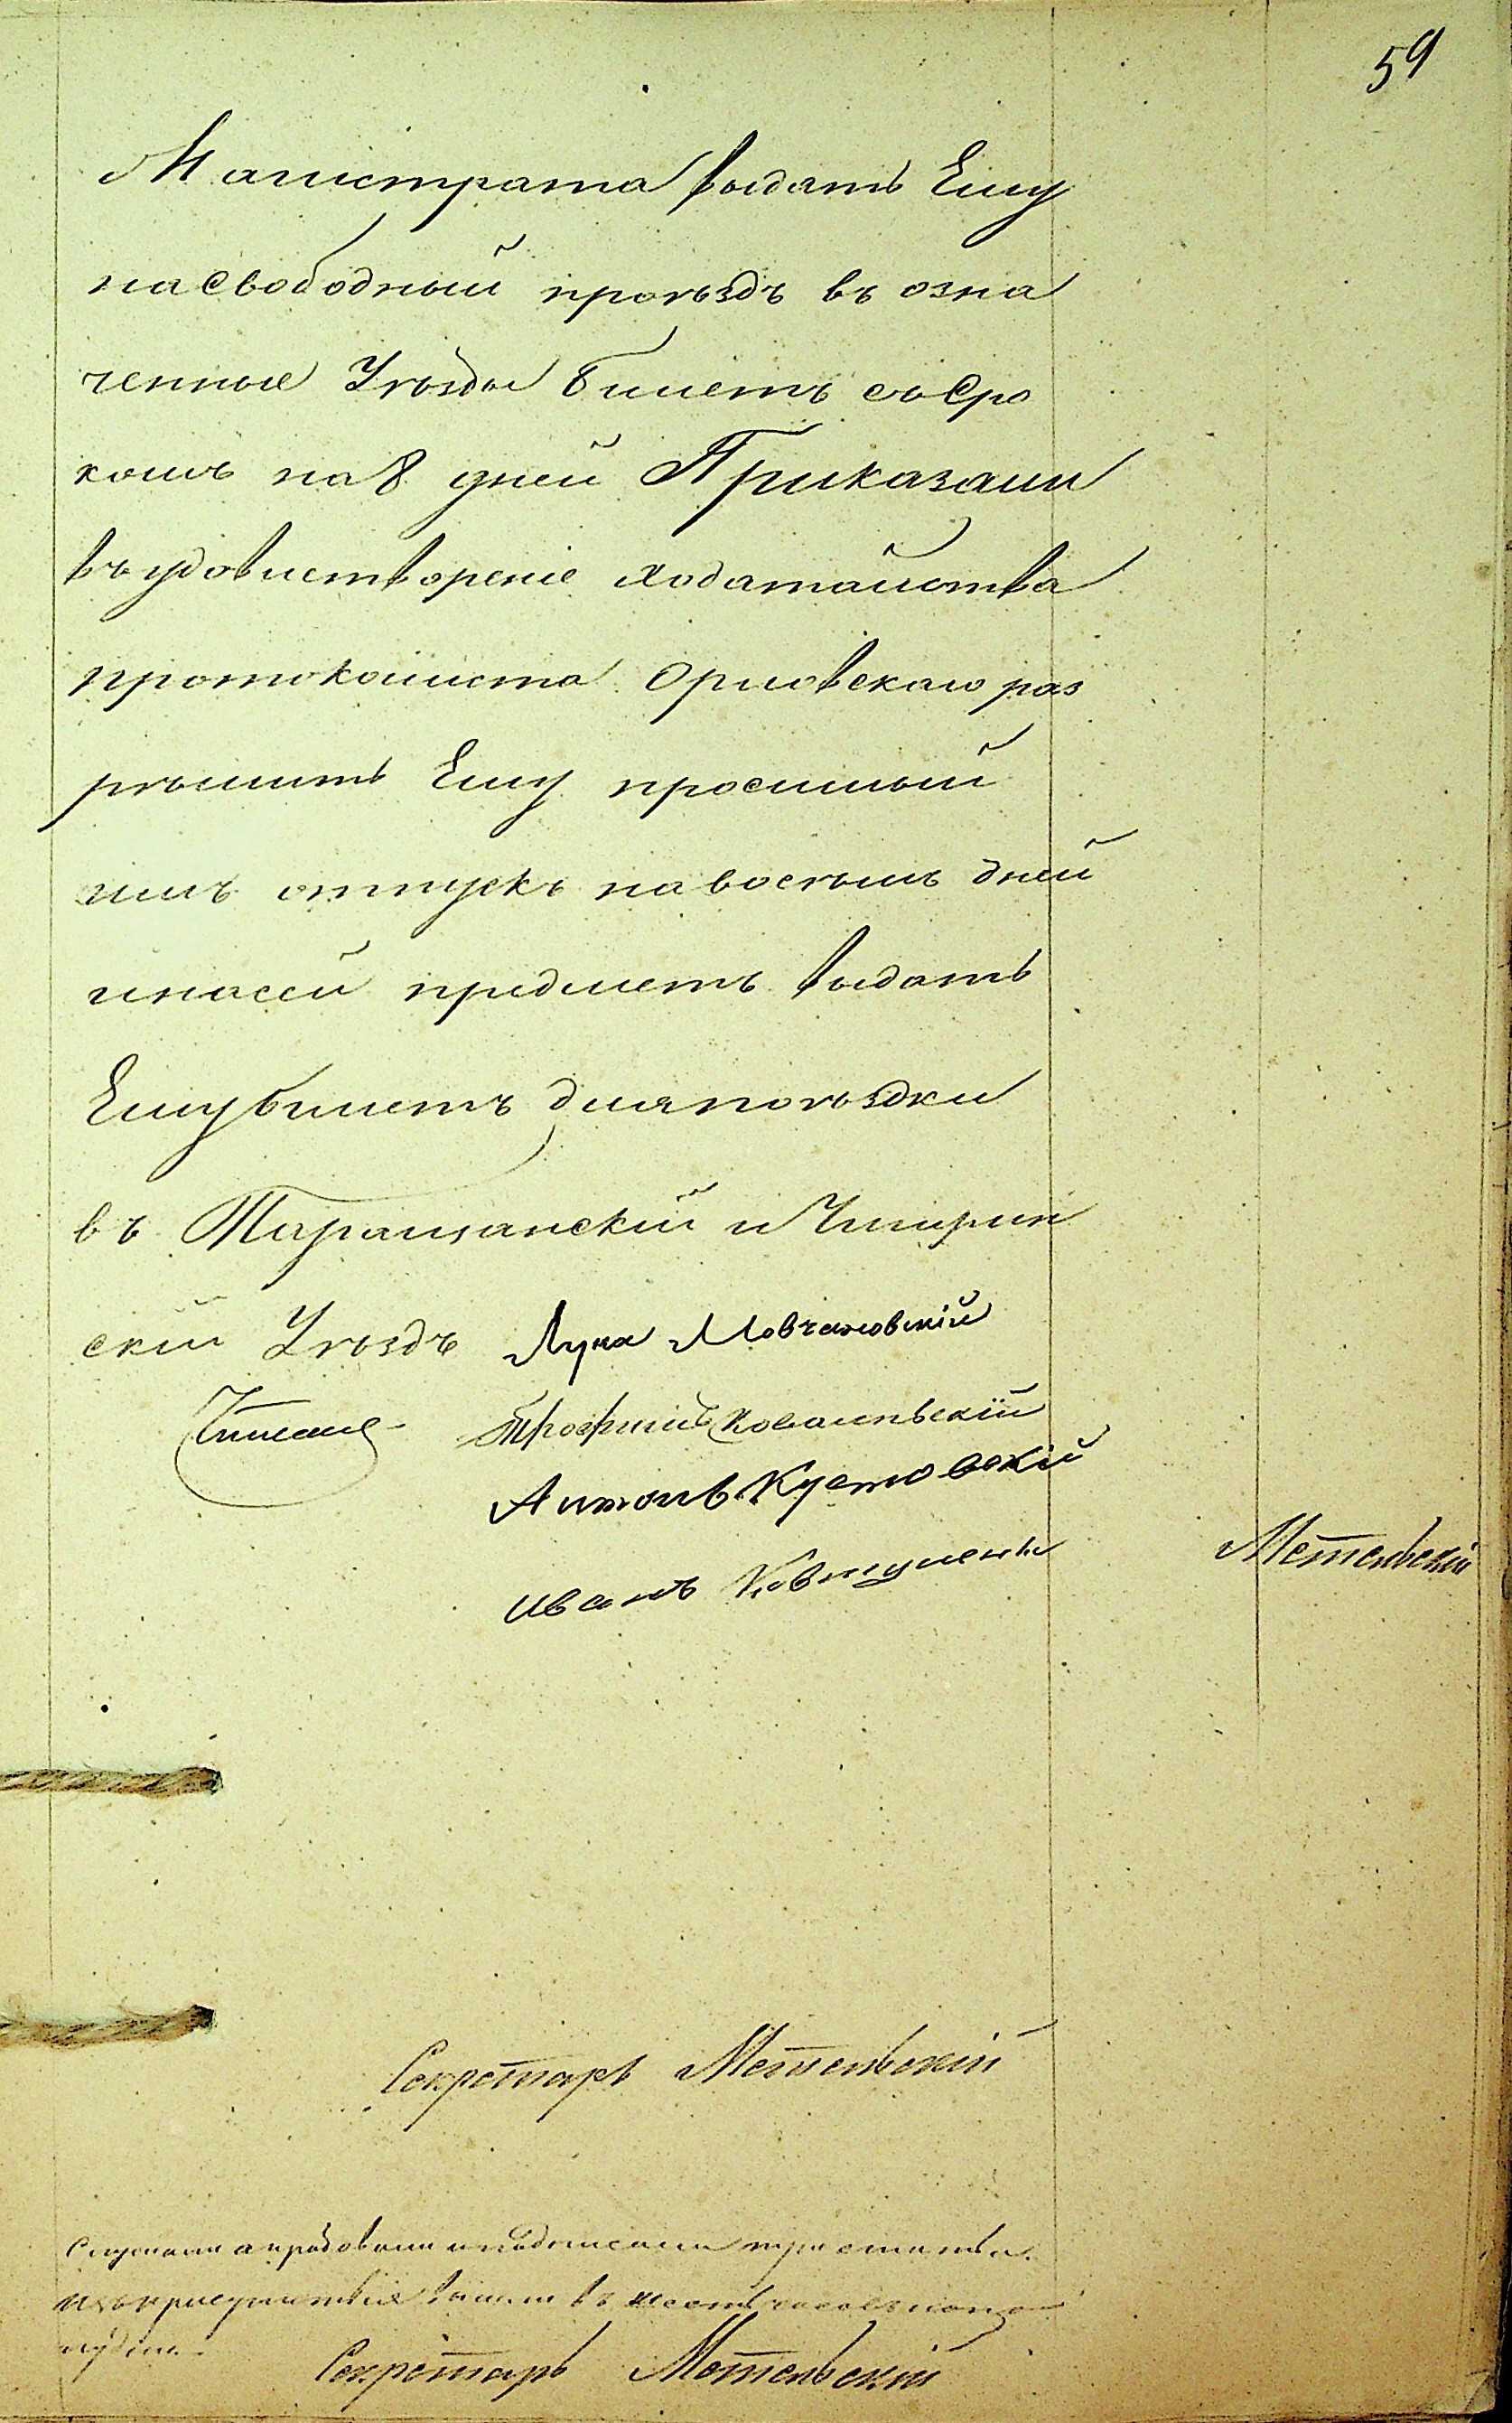 59
Магистрата выдать Ему
на свободный проѣздъ въ озна
ченные Уѣзды билетъ съ Сро
комъ на 8 дней Приказали
въ удовлетвореніе ходатайства
протоколиста Орловскаго раз
рѣшить Ему просимый
имъ отпускъ на восѣмь дней
и на сей предметъ выдать
Ему билетъ для поѣздки
въ Таращанскій и Чигрин
скій Уѣздъ Лука Мовчановскій
Трофимъ Ковалевскій
Антонъ Кустовскій
Иванъ Ковтуненко
Метельскій
Секретарь Метельскій
Слушали а пробовали и подписали три статьи
изъ присутствія вышли въ
Секретарь Метельскій